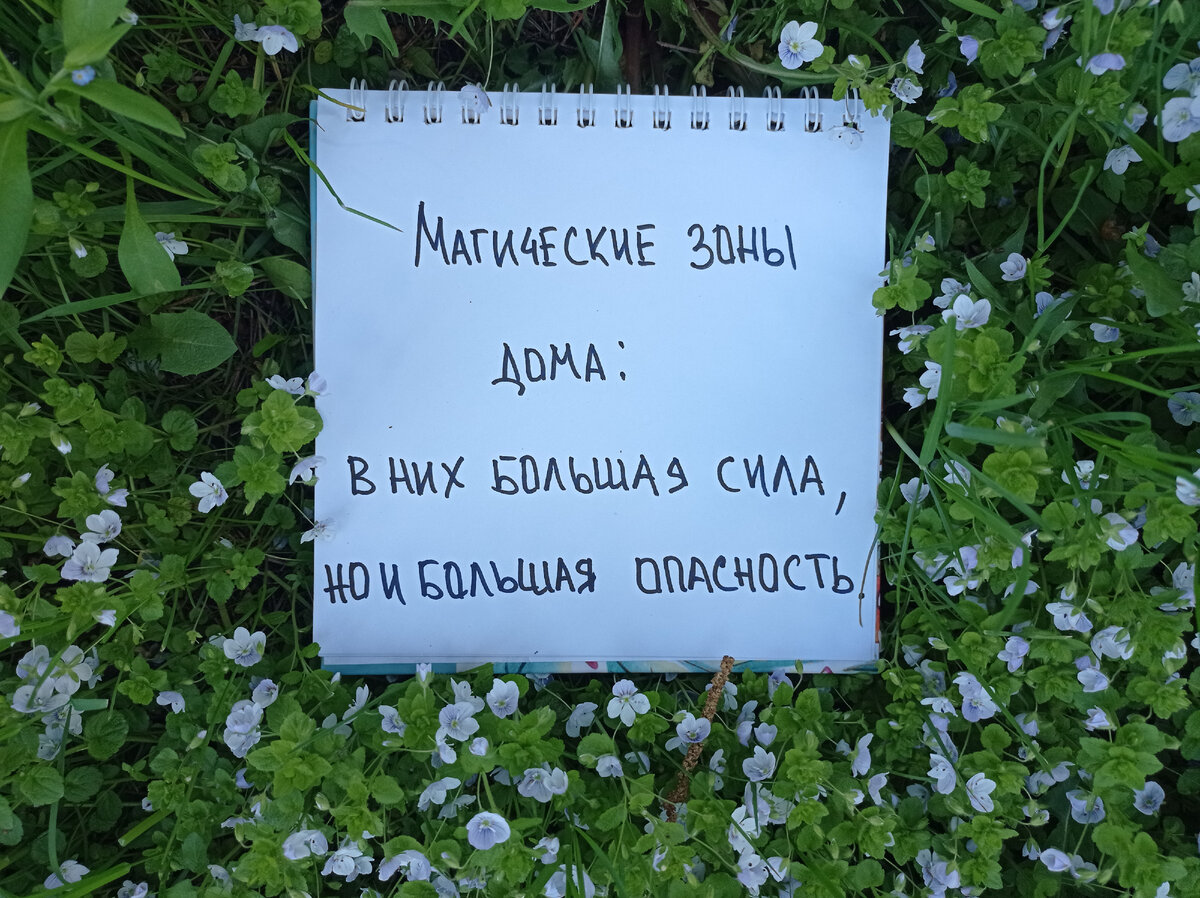 Магические зоны
дома:
в них большая сила,
но и большая опасность